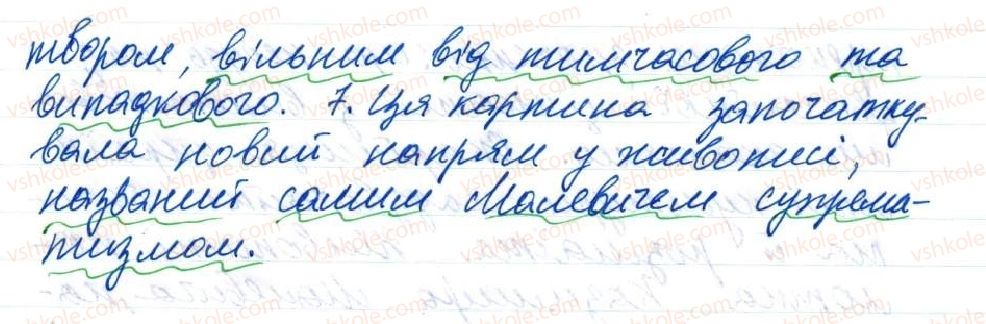 твором, вільним від тимчасового та
випадкового. 7. Ця картина започатку-
вала новий напрям у живописі,
названий самим Малевичем супрема-
тизмом.